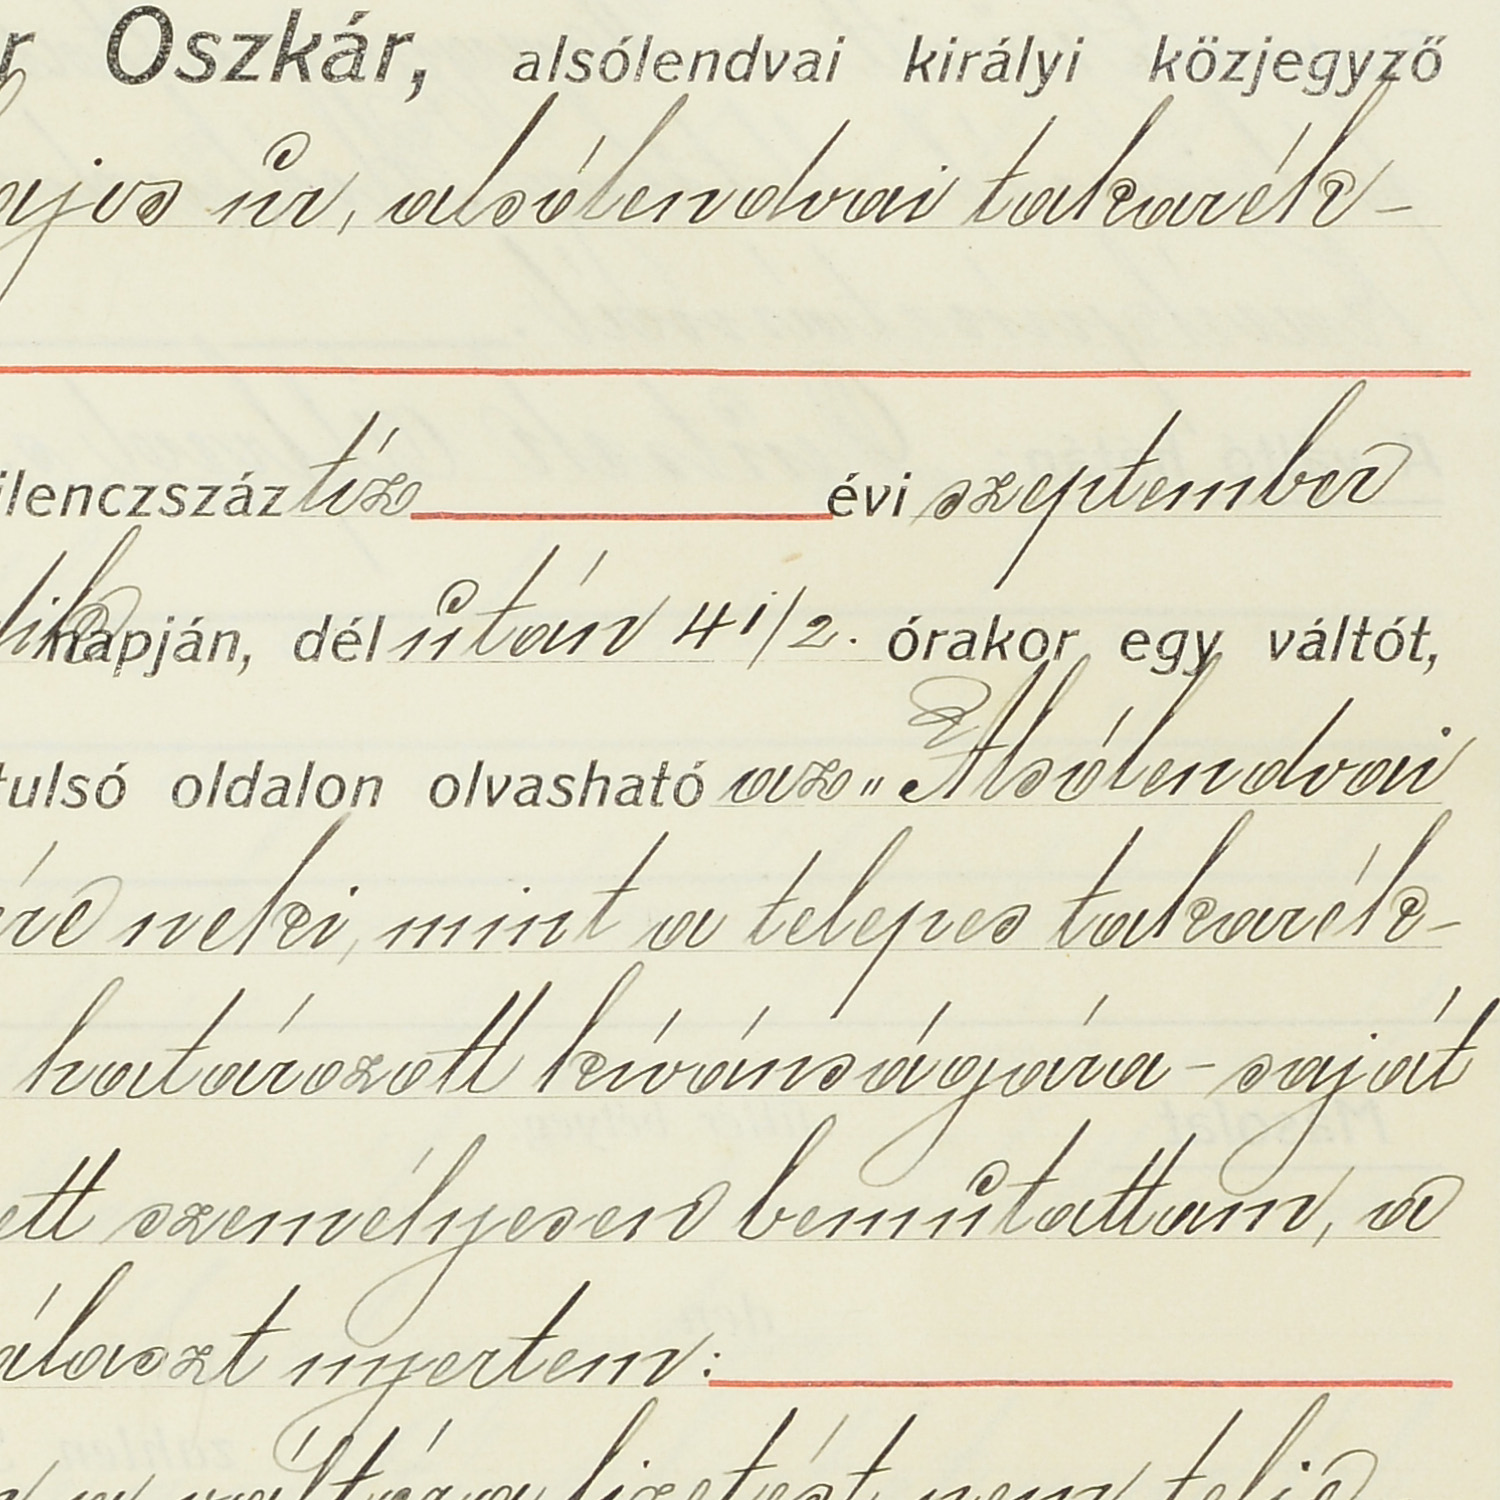 r Oszkár, alsólendvai királyi közjegyző
ajos úr, alsólendvai takarék-
ilenczszáz tíz évi szeptember
dik napján, dél után 4 1/2. órakor egy váltót,
tulsó oldalon olvasható az „Alsólendvai
ére neki, mint a telepes takarék-
határozott kívánságára - saját
ett személyesen bemutattam, a
álaszt nyertem:
a váltóra fizetést nem telje